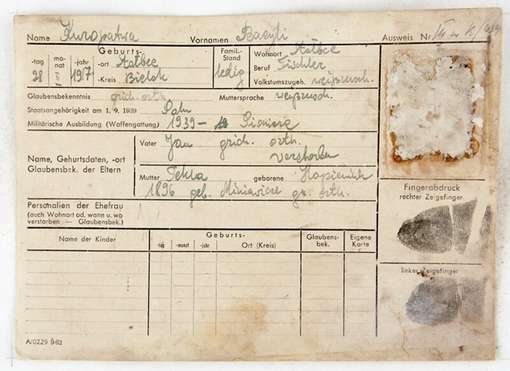 Name Kuropatwa Vornamen Bazyli Ausweis Nr.
Geburts- Famil.- Stand Wohnort
-tag mo- nat -jahr -ort Beruf Tischler
28 3 1917 -Kreis Bielsk ledig Volkstumszugeh. weißrusch.
Glaubensbekenntnis grich. orth. Muttersprache weißrusch.
Staatsangehörigkeit am 1. 9. 1939 Poln
Militärische Ausbildung (Waffengattung) 1939 – Pioniere
Name, Geburtsdaten, -ort
Glaubensbek. der Eltern
Vater Jan grich. orth.
verstorben
Mutter Tekla geborene
1896 geb. gr. orth.
Personalien der Ehefrau
(auch Wohnort od. wann u. wo
verstorben — Glaubensbek.)
Name der Kinder Geburts- Glaubens- bek. Eigene Karte
-tag -monat -jahr Ort (Kreis)
Fingerabdruck
rechter Zeigefinger
linker Zeigefinger